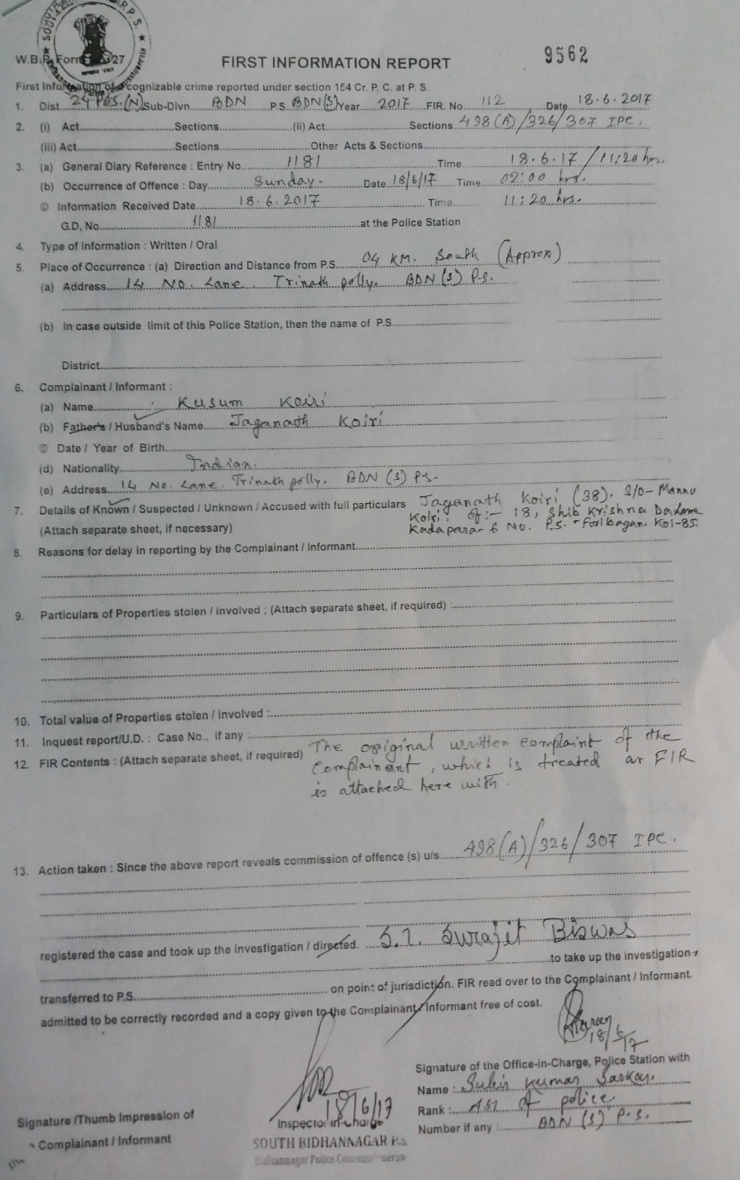 SOUTH P.S.
W.B.P. Form 27
FIRST INFORMATION REPORT
9562
First Information of cognizable crime reported under section 154 Cr. P. C. at P. S.
1. Dist. 24 PGS. (N) Sub-Divn BDN P.S. BDN(S) Year 2017 FIR. No. 112 Date 18.6.2017
2. (i) Act Sections (ii) Act Sections 498(A)/326/307 IPC.
(iii) Act Sections Other Acts & Sections
3. (a) General Diary Reference : Entry No 1181 Time 18.6.17 / 11:20 hrs.
(b) Occurrence of Offence : Day Sunday. Date 18/6/17 Time 02:00 hrs.
© Information Received Date 18.6.2017 Time 11:20 hrs.
G.D, No. 1181 at the Police Station
4. Type of information : Written / Oral
5. Place of Occurrence : (a) Direction and Distance from P.S. 04 KM. South (Approx)
(a) Address 14 No. Lane. Trinath polly. BDN (S) P.s.
(b) In case outside limit of this Police Station, then the name of P.S
District
6. Complainant / Informant :
(a) Name Kusum Koiri
(b) Father's / Husband's Name Jaganath Koiri
© Date / Year of Birth
(d) Nationality Indian.
(e) Address 14 No. Lane. Trinath polly. BDN (S) P.S.
7. Details of Known / Suspected / Unknown / Accused with full particulars Jaganath Koiri (38). S/O- Mannu
Koiri. of:- 18, Shib Krishna Da Lane
(Attach separate sheet, if necessary) Kadapara 6 No. P.S. - Foolbagan. Kol-85.
8. Reasons for delay in reporting by the Complainant / Informant
9. Particulars of Properties stolen / involved ; (Attach separate sheet, if required) :
10. Total value of Properties stolen / involved :
11. Inquest report/U.D. : Case No., if any :
12. FIR Contents : (Attach separate sheet, if required) The original written complaint of the
Complainant, which is treated as FIR
is attached here with.
13. Action taken : Since the above report reveals commission of offence (s) u/s 498(A)/326/307 IPC.
registered the case and took up the investigation / directed. S.I. Surajit Biswas
to take up the investigation
transferred to P.S. on point of jurisdiction. FIR read over to the Complainant / Informant.
admitted to be correctly recorded and a copy given to the Complainant / Informant free of cost.
18/6/17
Signature of the Office-in-Charge, Police Station with
Name : Subir Kumar Sarkar.
18/6/17
Rank : ASI of police
Signature /Thumb Impression of
Inspector in-Charge
Number if any : BDN (S) P.S.
Complainant / Informant
SOUTH BIDHANNAGAR P.S.
Bidhannagar Police Commissionerate